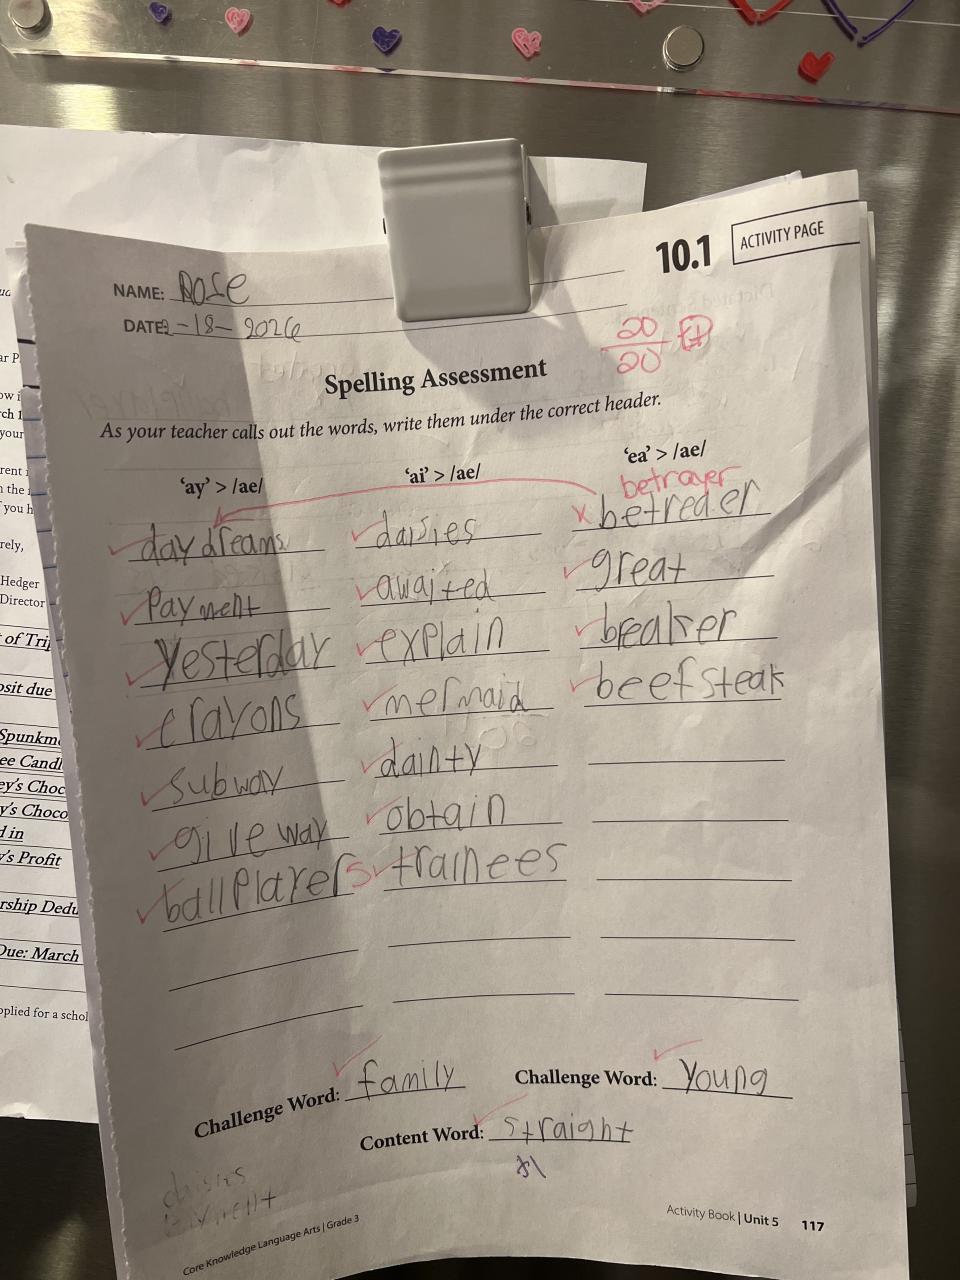 10.1
ACTIVITY PAGE
NAME: Rose
DATE: -18- 2026
20
20
Spelling Assessment
As your teacher calls out the words, write them under the correct header.
‘ay’ > /ae/
‘ai’ > /ae/
‘ea’ > /ae/
betrayer
daydreams
daisies
betreaer
payment
awaited
great
yesterday
explain
breaker
crayons
mermaid
beefsteak
subway
dainty
giveway
obtain
ballplayers
trainees
Challenge Word: family
Challenge Word: young
Content Word: straight
daisies
payment
Core Knowledge Language Arts | Grade 3
Activity Book | Unit 5 117
ar P
rch 1
your
rent
n the
f you h
rely,
Hedger
Director
of Trip
osit due
Spunkm
ee Candl
ey’s Choc
y’s Choco
d in
y’s Profit
rship Dedu
Due: March
pplied for a schol